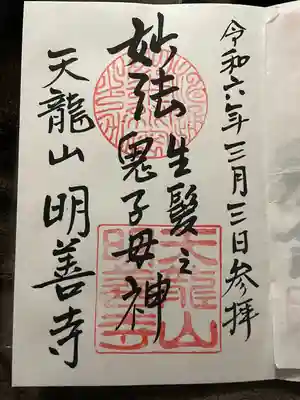 令和六年三月三日参拝
妙法生髪之
鬼子母神
天龍山 明善寺
天龍山
明善寺